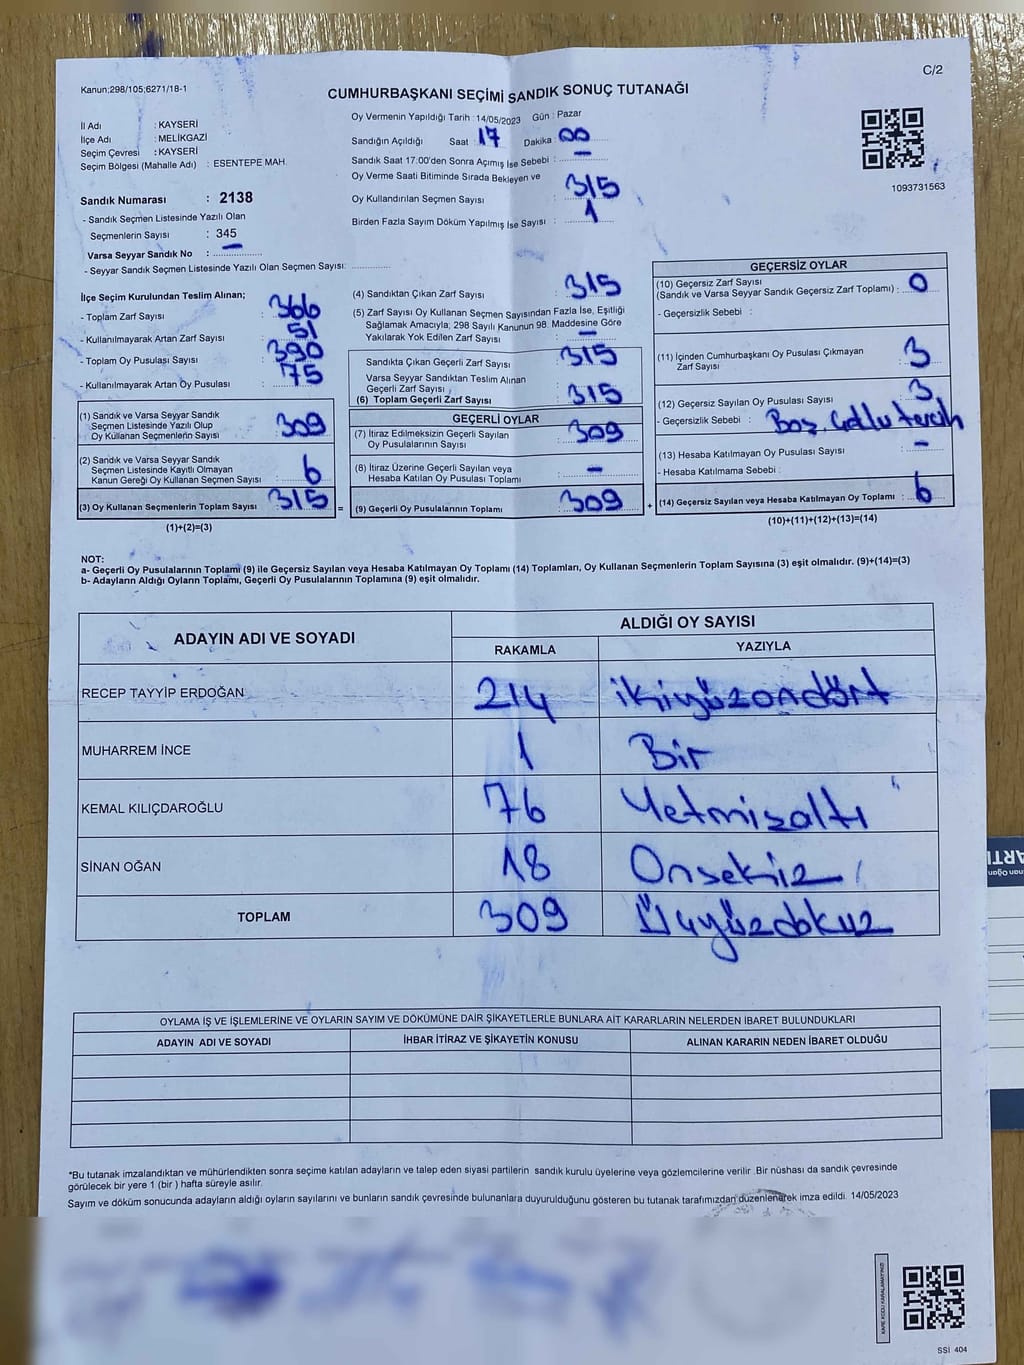 C/2
Kanun;298/105;6271/18-1
CUMHURBAŞKANI SEÇİMİ SANDIK SONUÇ TUTANAĞI
İl Adı : KAYSERİ
İlçe Adı : MELİKGAZİ
Seçim Çevresi : KAYSERİ
Seçim Bölgesi (Mahalle Adı) : ESENTEPE MAH.
Sandık Numarası : 2138
- Sandık Seçmen Listesinde Yazılı Olan
Seçmenlerin Sayısı : 345
Varsa Seyyar Sandık No : –
- Seyyar Sandık Seçmen Listesinde Yazılı Olan Seçmen Sayısı: ............
Oy Vermenin Yapıldığı Tarih : 14/05/2023 Gün : Pazar
Sandığın Açıldığı Saat : 17 Dakika : 00
Sandık Saat 17:00'den Sonra Açımış İse Sebebi : –
Oy Verme Saati Bitiminde Sırada Bekleyen ve
Oy Kullandırılan Seçmen Sayısı : 315
Birden Fazla Sayım Döküm Yapılmış İse Sayısı : 1
1093731563
İlçe Seçim Kurulundan Teslim Alınan;
- Toplam Zarf Sayısı : 366
- Kullanılmayarak Artan Zarf Sayısı : 51
- Toplam Oy Pusulası Sayısı : 390
- Kullanılmayarak Artan Oy Pusulası : 75
(1) Sandık ve Varsa Seyyar Sandık
Seçmen Listesinde Yazılı Olup
Oy Kullanan Seçmenlerin Sayısı : 309
(2) Sandık ve Varsa Seyyar Sandık
Seçmen Listesinde Kayıtlı Olmayan
Kanun Gereği Oy Kullanan Seçmen Sayısı : 6
(3) Oy Kullanan Seçmenlerin Toplam Sayısı : 315 =
(1)+(2)=(3)
(4) Sandıktan Çıkan Zarf Sayısı : 315
(5) Zarf Sayısı Oy Kullanan Seçmen Sayısından Fazla İse, Eşitliği
Sağlamak Amacıyla; 298 Sayılı Kanunun 98. Maddesine Göre
Yakılarak Yok Edilen Zarf Sayısı : –
Sandıkta Çıkan Geçerli Zarf Sayısı : 315
Varsa Seyyar Sandıktan Teslim Alınan
Geçerli Zarf Sayısı
(6) Toplam Geçerli Zarf Sayısı : 315
GEÇERLİ OYLAR
(7) İtiraz Edilmeksizin Geçerli Sayılan
Oy Pusulalarının Sayısı : 309
(8) İtiraz Üzerine Geçerli Sayılan veya
Hesaba Katılan Oy Pusulası Toplamı : –
(9) Geçerli Oy Pusulalarının Toplamı : 309 +
GEÇERSİZ OYLAR
(10) Geçersiz Zarf Sayısı
(Sandık ve Varsa Seyyar Sandık Geçersiz Zarf Toplamı) : 0
- Geçersizlik Sebebi :
(11) İçinden Cumhurbaşkanı Oy Pusulası Çıkmayan
Zarf Sayısı : 3
(12) Geçersiz Sayılan Oy Pusulası Sayısı : 3
- Geçersizlik Sebebi : Boş, Çoklu tercih
(13) Hesaba Katılmayan Oy Pusulası Sayısı : –
- Hesaba Katılmama Sebebi :
(14) Geçersiz Sayılan veya Hesaba Katılmayan Oy Toplamı : 6
(10)+(11)+(12)+(13)=(14)
NOT:
a- Geçerli Oy Pusulalarının Toplamı (9) ile Geçersiz Sayılan veya Hesaba Katılmayan Oy Toplamı (14) Toplamları, Oy Kullanan Seçmenlerin Toplam Sayısına (3) eşit olmalıdır. (9)+(14)=(3)
b- Adayların Aldığı Oyların Toplamı, Geçerli Oy Pusulalarının Toplamına (9) eşit olmalıdır.
ADAYIN ADI VE SOYADI ALDIĞI OY SAYISI
RAKAMLA YAZIYLA
RECEP TAYYİP ERDOĞAN 214 ikiyüzondört
MUHARREM İNCE 1 Bir
KEMAL KILIÇDAROĞLU 76 Yetmişaltı
SİNAN OĞAN 18 Onsekiz
TOPLAM 309 Üçyüzdokuz
OYLAMA İŞ VE İŞLEMLERİNE VE OYLARIN SAYIM VE DÖKÜMÜNE DAİR ŞİKAYETLERLE BUNLARA AİT KARARLARIN NELERDEN İBARET BULUNDUKLARI
ADAYIN ADI VE SOYADI İHBAR İTİRAZ VE ŞİKAYETİN KONUSU ALINAN KARARIN NEDEN İBARET OLDUĞU
*Bu tutanak imzalandıktan ve mühürlendikten sonra seçime katılan adayların ve talep eden siyasi partilerin sandık kurulu üyelerine veya gözlemcilerine verilir .Bir nüshası da sandık çevresinde
görülecek bir yere 1 (bir ) hafta süreyle asılır.
Sayım ve döküm sonucunda adayların aldığı oyların sayılarını ve bunların sandık çevresinde bulunanlara duyurulduğunu gösteren bu tutanak tarafımızdan düzenlenerek imza edildi. 14/05/2023
KARE KODU KARALAMAYINIZ!
SSİ 404